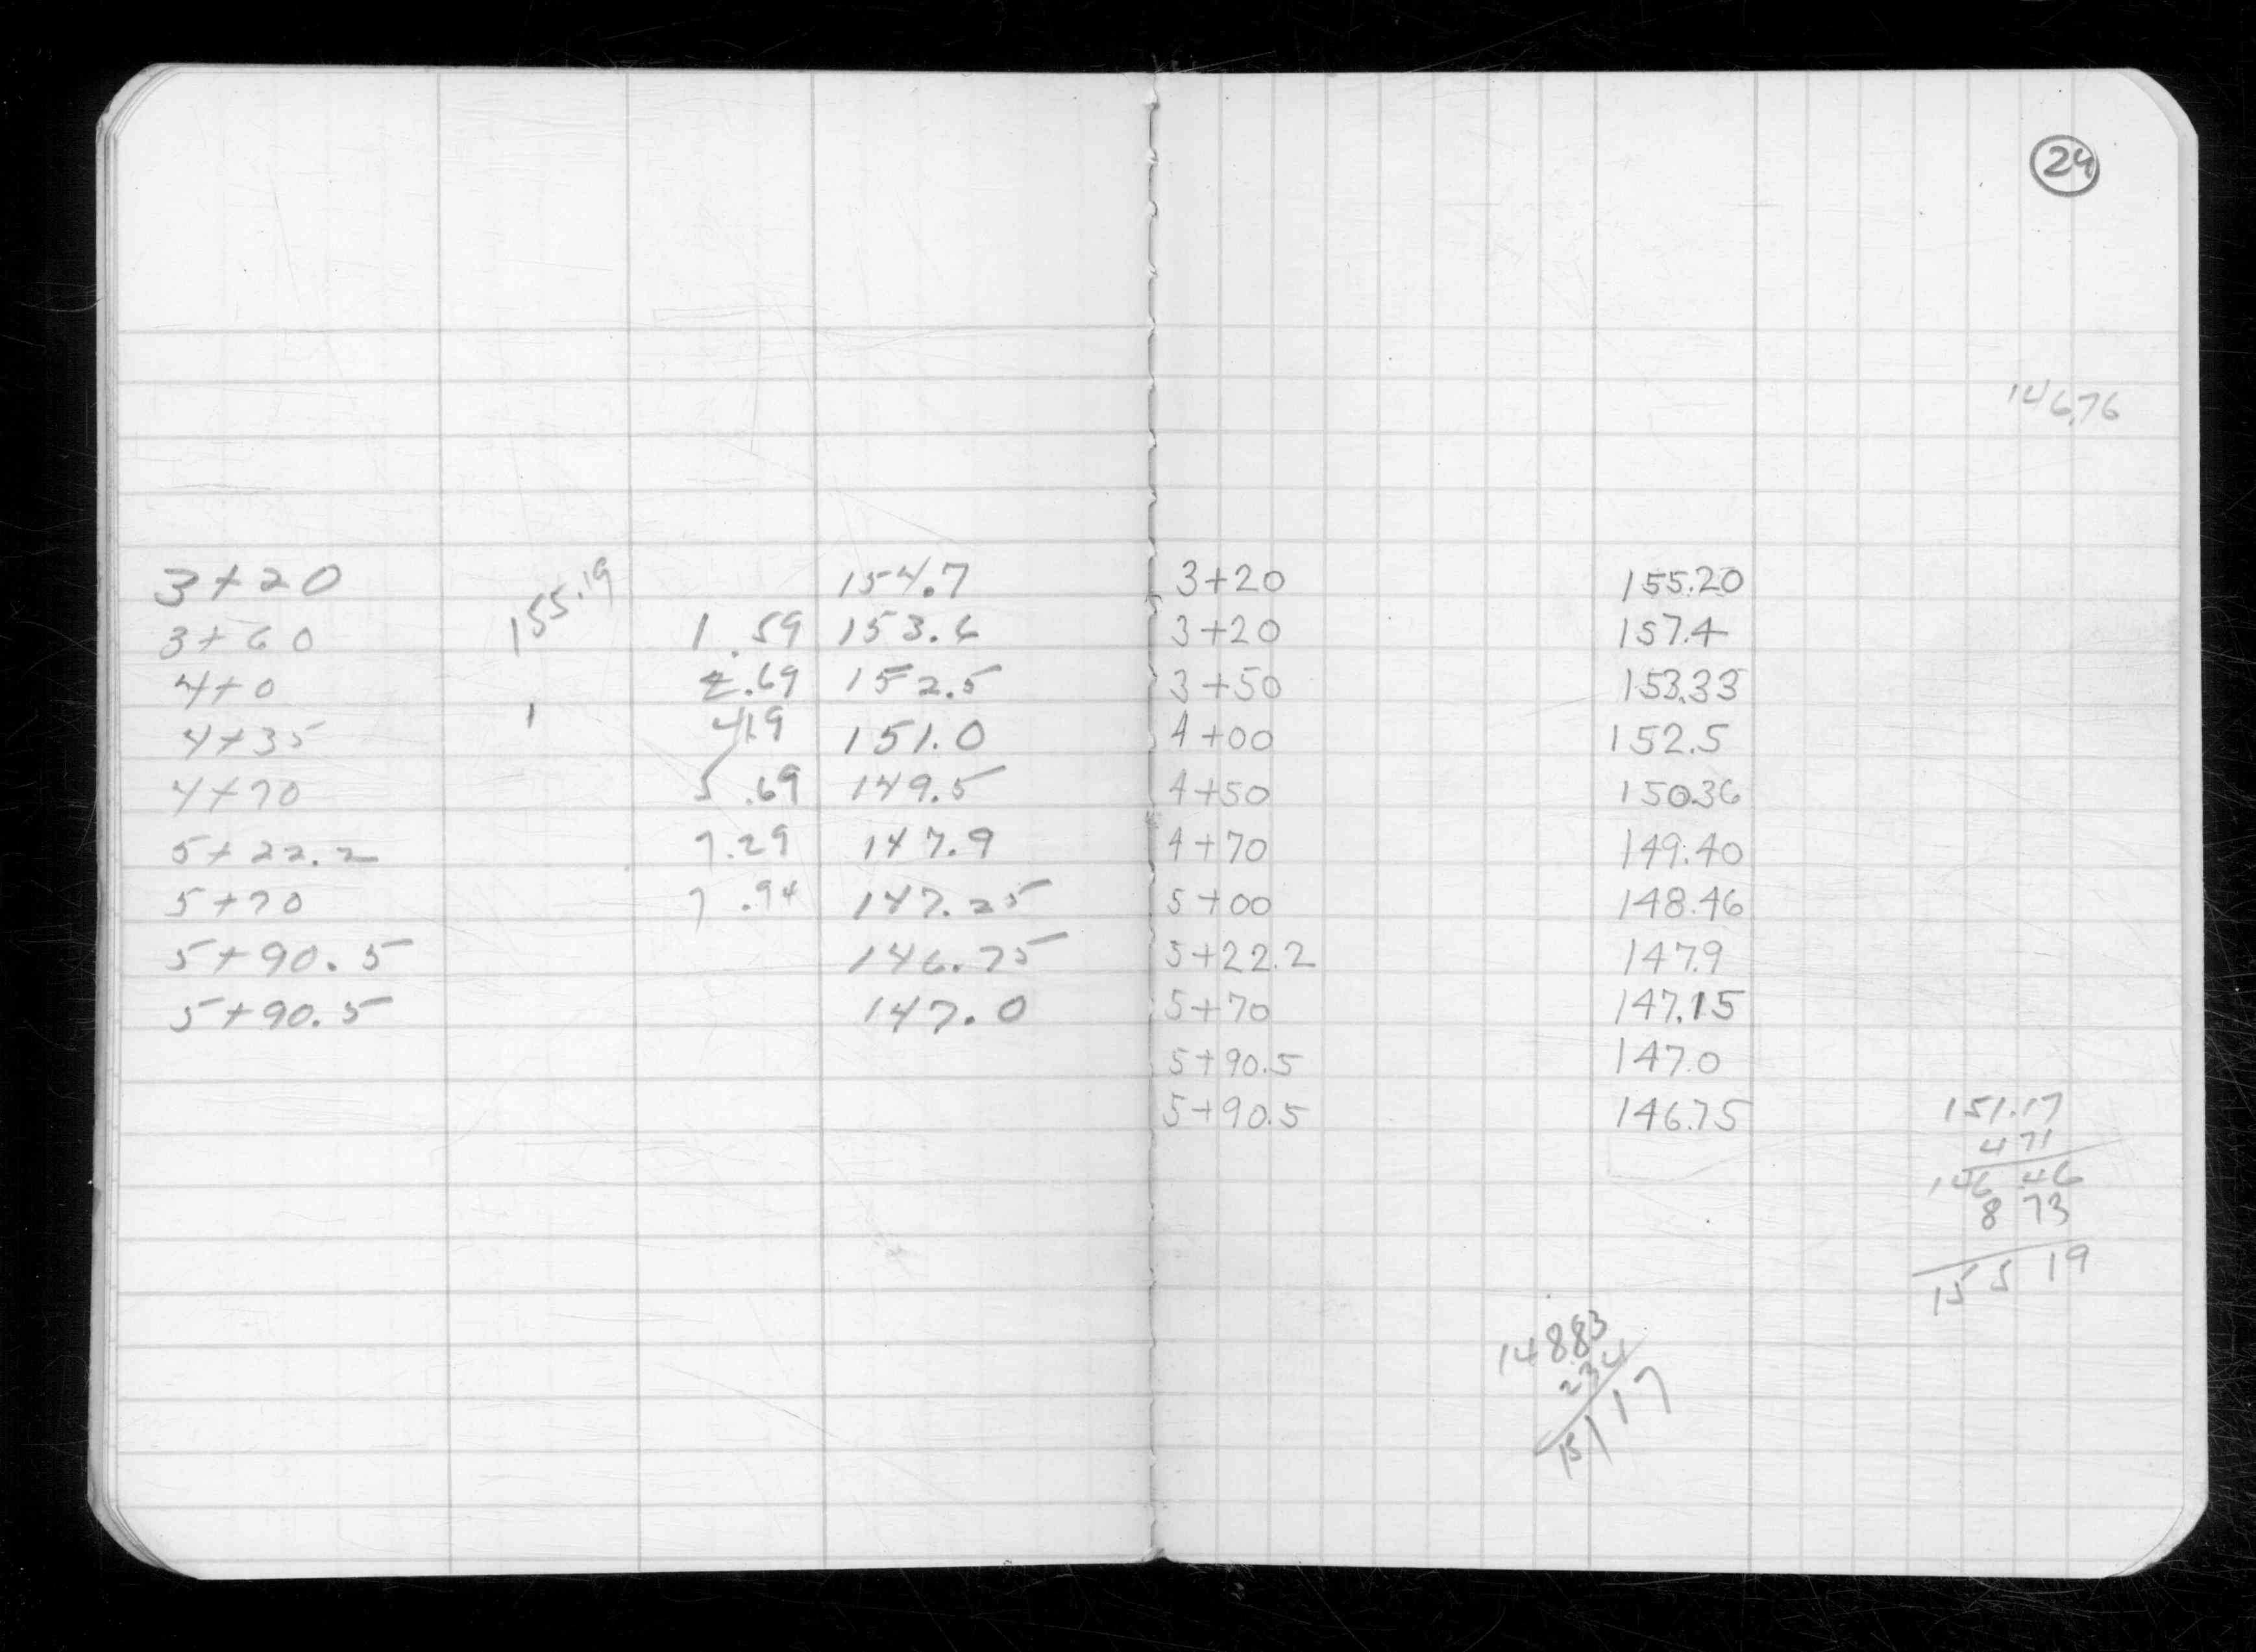 24
146.76
3+20 154.7
155.19
3+60 1.59 153.6
4+0 2.69 152.5
4+35 1 4.19 151.0
4+70 5.69 149.5
5+22.2 7.29 147.9
5+70 7.94 147.25
5+90.5 146.75
5+90.5 147.0
3+20 155.20
3+20 157.4
3+50 153.33
4+00 152.5
4+50 150.36
4+70 149.40
5+00 148.46
5+22.2 147.9
5+70 147.15
5+90.5 147.0
5+90.5 146.75
151.17
4 71
146 46
8 73
155 19
148.83
2 34
151 17